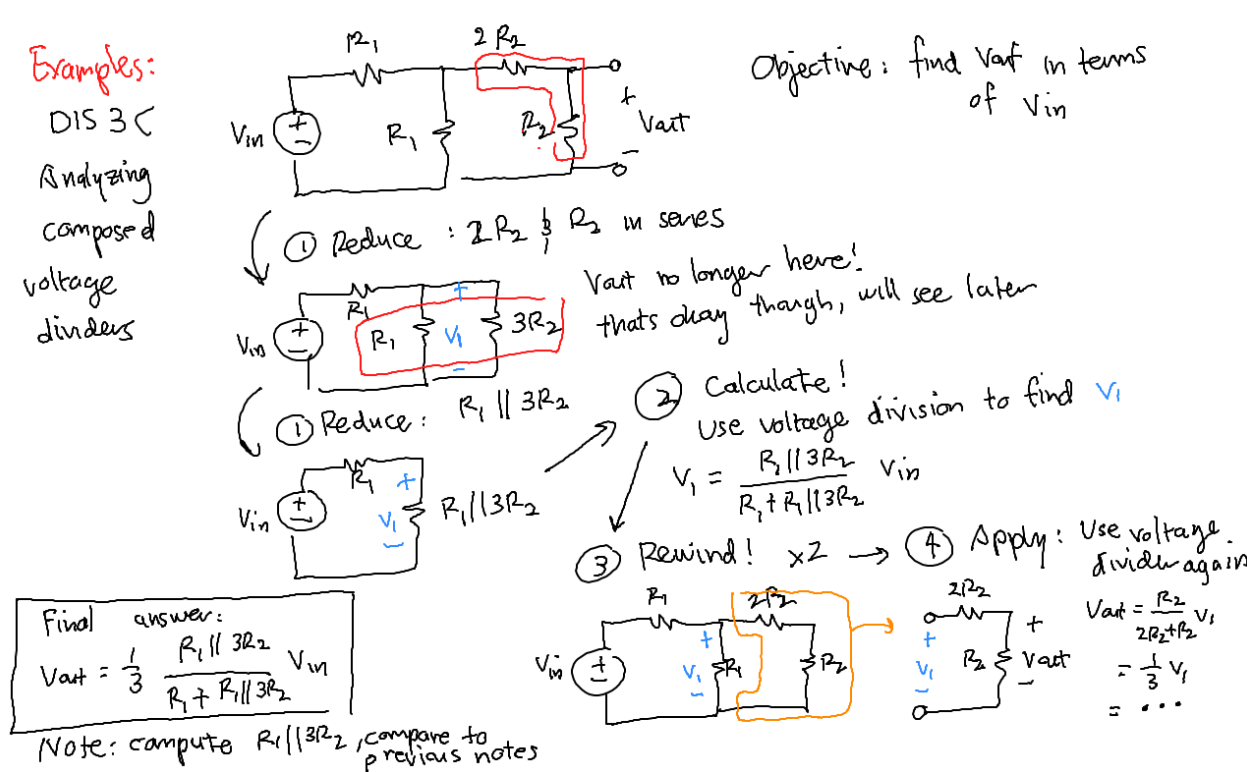 Examples:
DIS 3C
Analyzing
composed
voltage
dividers
R₁
2R₂
Vin
+
−
R₁
R₂
+
Vout
−
Objective: find Vout in terms
of Vin
① Reduce : 2R₂ & R₂ in series
Vin
+
−
R₁
R₁
+
V₁
−
3R₂
Vout no longer here!
thats okay though, will see later
① Reduce: R₁ || 3R₂
Vin
+
−
R₁
+
V₁
−
R₁||3R₂
② Calculate!
Use voltage division to find V₁
V₁ = R₁||3R₂ / R₁ + R₁||3R₂ Vin
③ Rewind! x2 → ④ Apply: Use voltage
divider again
Vin
+
−
R₁
+
V₁
−
R₁
2R₂
R₂
2R₂
+
V₁
−
R₂
+
Vout
−
Vout = R₂ / 2R₂+R₂ V₁
= 1/3 V₁
= •••
Final answer:
Vout = 1/3 R₁||3R₂ / R₁ + R₁||3R₂ Vin
Note: compute R₁||3R₂, compare to
previous notes